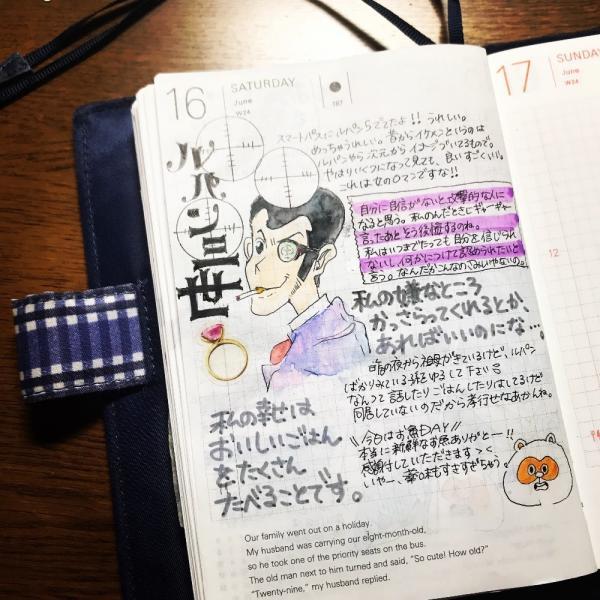 16
SATURDAY
June
W24
167
17
SUNDAY
June
W24
12
ルパン三世
スマートパスにルパン5でてたよ!! うれしい。
めっちゃうれしい。昔からイケメンというのは
ルパンやら次元からイメージついてるもので。
やはりいくつになって見ても、良いすごくいい。
これは女のロマンですな!!
自分に自信がないと攻撃的な人に
なると思う。私のんだときしギャーギャー
言ったあとそう後悔するのね。
私はいつまでたっても自分を信じられ
ないし、何かにつけて認められたいと
思う。なんだかこんなの、みいやないの。
私の嫌なところ
かっさらってくれるとか、
あればいいのにな…。
昨日の夜から祖母がきているけど、ルパン
ばかりみている孫ゆるして下さい
なんつって 話したりごはんしたりはしてるけど
同居していないのだから孝行せなあかんね。
私の幸せは
おいしいごはん
をたくさん
たべることです。
\\今日はお魚DAY//
本当に新鮮なお魚ありがとー!!
感謝していただきます
いやー、薬味もすきすぎちゃう。
Our family went out on a holiday.
My husband was carrying our eight-month-old,
so he took one of the priority seats on the bus.
The old man next to him turned and said, "So cute! How old?"
"Twenty-nine," my husband replied.